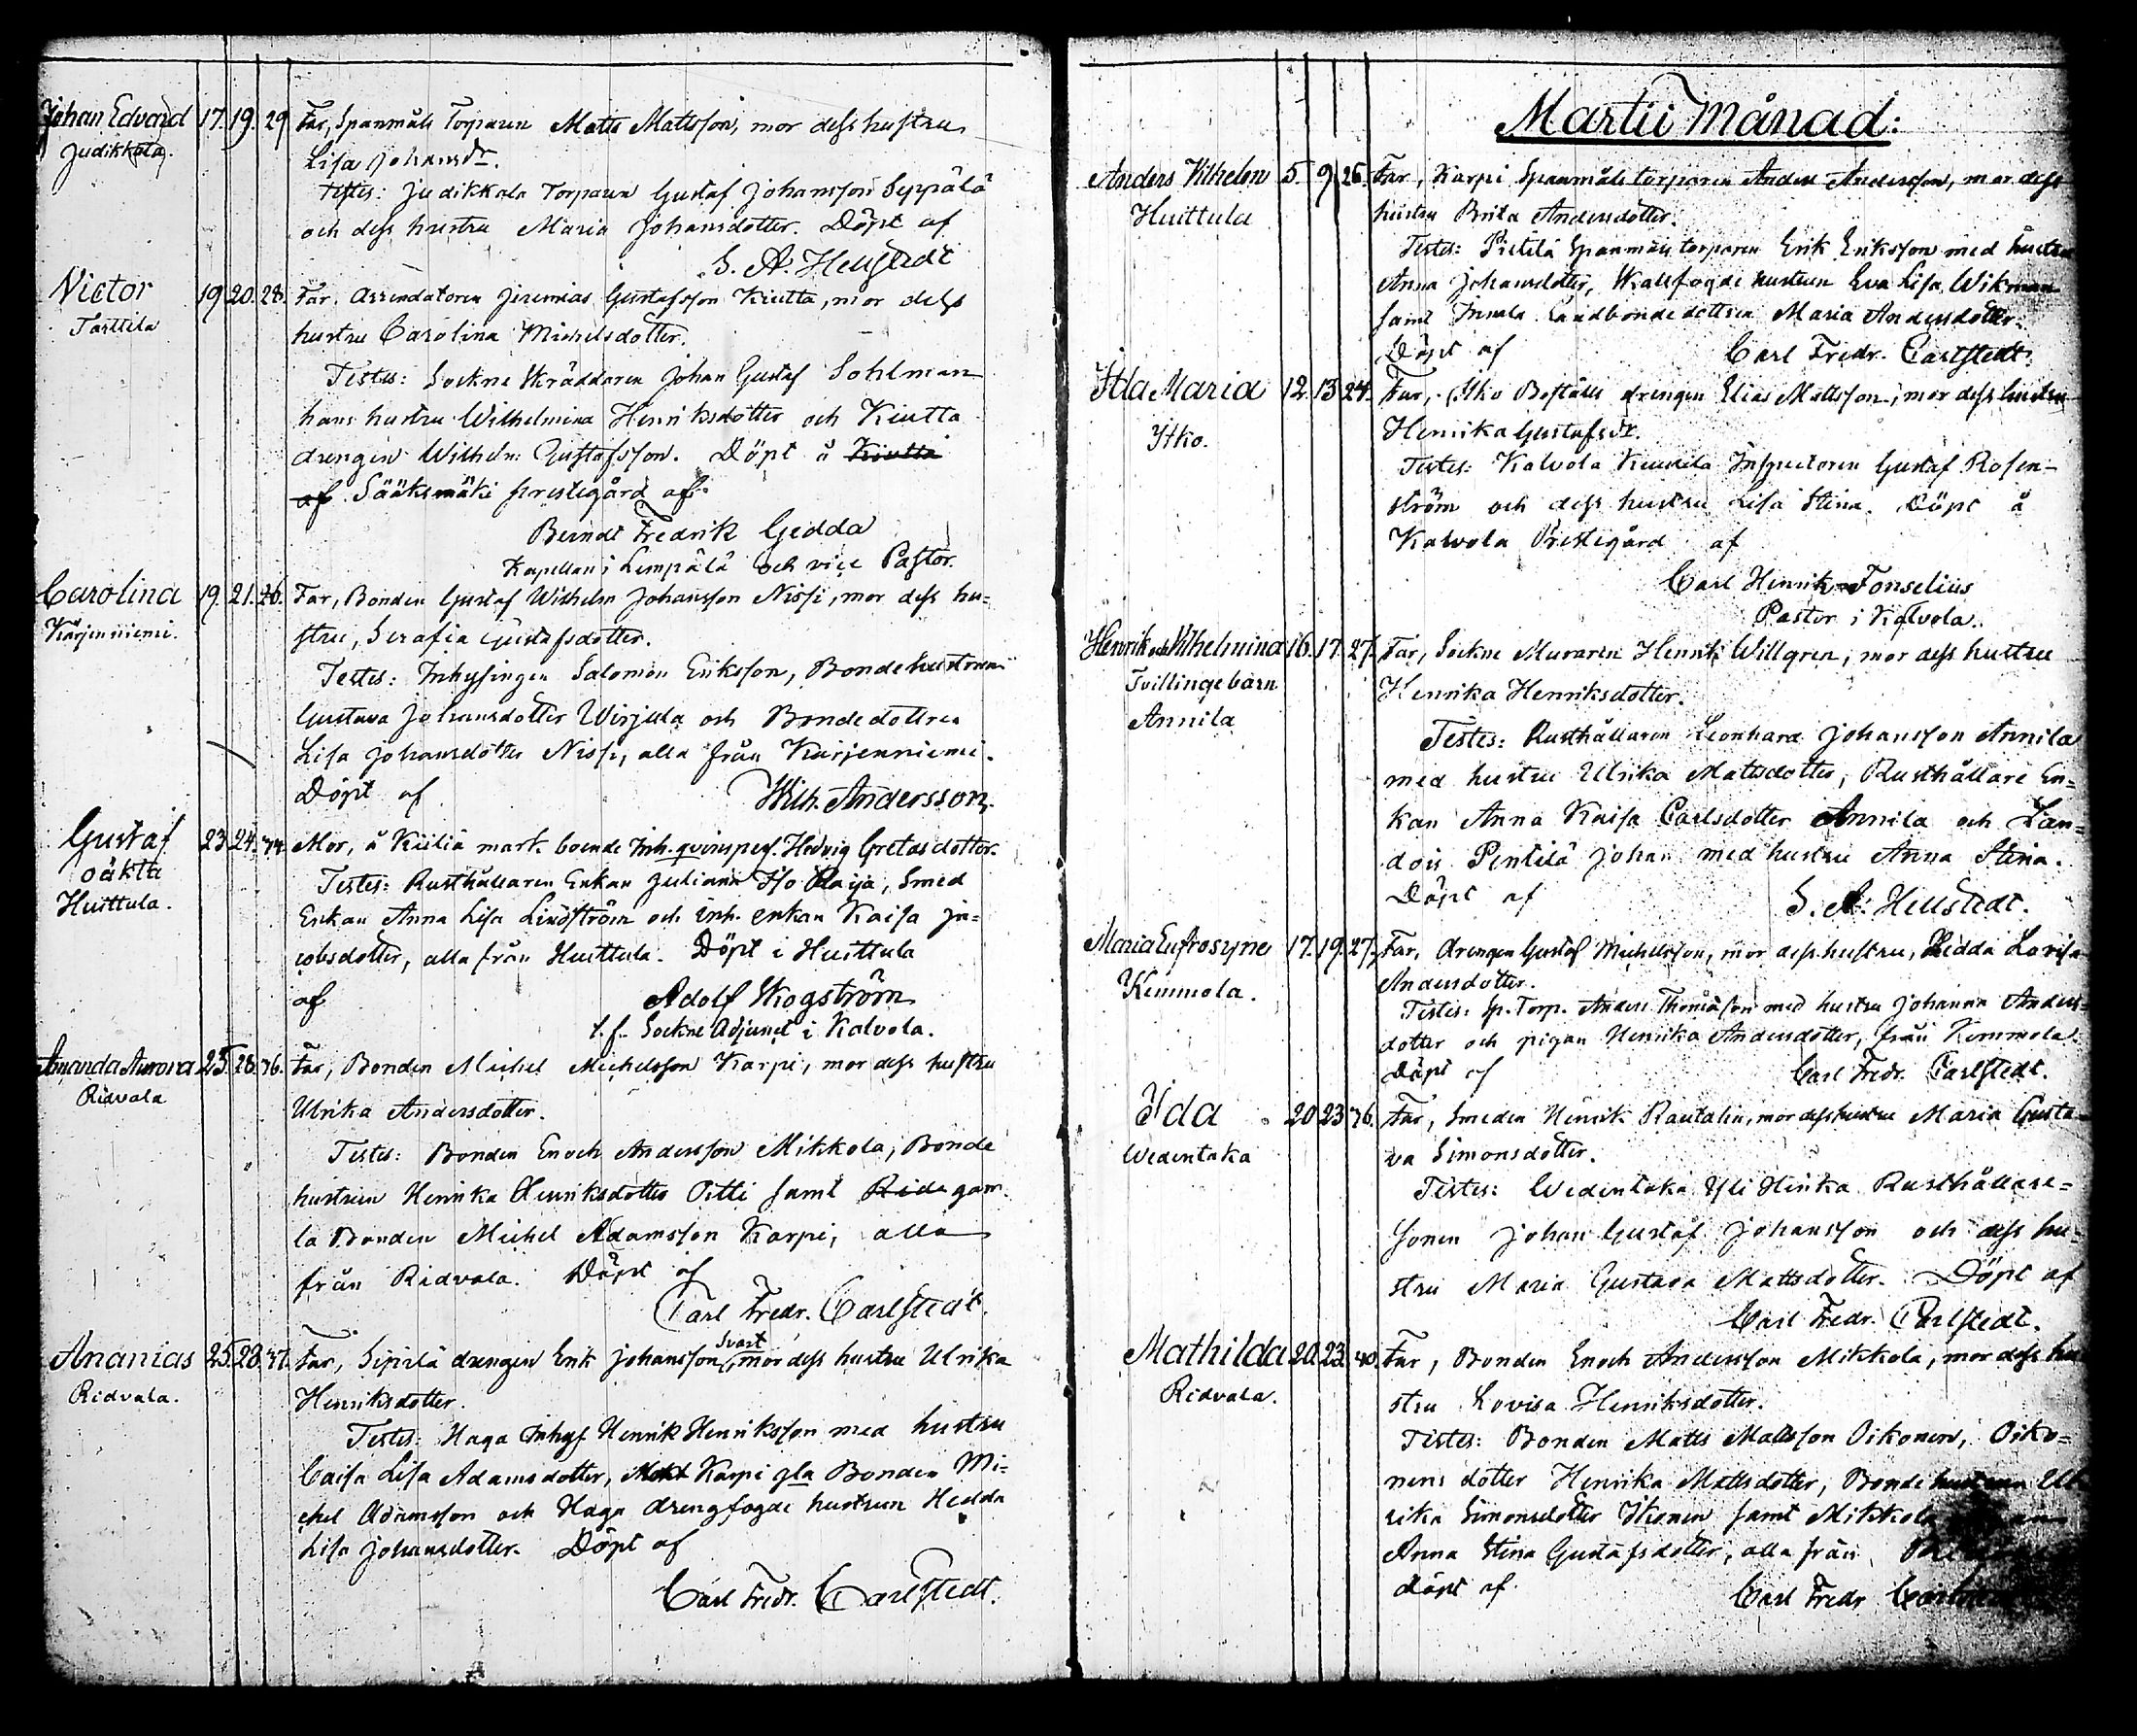 Johan Edvard 17. 19. 29 Far, Spanmåls Torparen Matts Mattsson, mor dess hustru
Judikkala. Lisa Johansdr.
Testes: Judikkala Torparen Gustaf Johansson Seppälä
och dess hustru Maria Johansdotter. Döpt af
S. A. Hellstedt
Victor 19 20. 28. Far. Arrendatoren Jeremias Gustafsson Kiutta, mor dess
Tarttila hustru Carolina Michelsdotter.
Testes: Sockne Skräddaren Johan Gustaf Sohlman
hans hustru Wilhelmina Henriksdotter och Kiutta
drengen Wilhelm Gustafsson. Döpt å Kiutta
af Sääksmäki prestegård af
Berndt Fredrik Gedda
Kapellan i Lempälä och vice Pastor.
Carolina 19. 21. 26. Far, Bonden Gustaf Wilhelm Johansson Nissi, mor dess hu-
Kärjenniemi. stru, Serafia Gustafsdotter.
Testes: Inhysingen Salomon Eriksson, Bondehustrun
Gustava Johansdotter Wirjula och Bondedottren
Lisa Johansdotter Nissi, alla från Kärjenniemi.
Döpt af Wilh. Andersson.
Gustaf 23. 24. 44. Mor, å Kiiliä mark boende Inh. qvinspers. Hedvig Gretasdotter.
oäkta Testes: Rusthållaren Enkan Juliana Iso Raija, Smed
Huittula. Enkan Anna Lisa Lindström och Inh. enkan Kaisa Ja-
cobsdotter, alla från Huittula. Döpt i Huittula
af Adolf Skogström
t.f. Sockne Adjunct i Kalvola.
Amanda Aurora 25. 28. 36. Far, Bonden Michel Michelsson Karpi, mor dess hustru
Ridvala Ulrika Andersdotter.
Testes: Bonden Enoch Andersson Mikkola, Bonde
hustrun Henrika Henriksdotter Ötti samt Rida gam-
la Bonden Michel Adamsson Karpi, alla
från Ridvala. Döpt af
Carl Fredr. Carlstedt.
Ananias 25. 28. 47. Far, Sipilä drengen Erik Johansson Svart mor dess hustru Ulrika
Ridvala. Henriksdotter.
Testes: Haga Inhys Henrik Henriksson med hustru
Caisa Lisa Adamsdotter, Karpi gla Bonden Mi-
chel Adamsson och Haga drengfogde hustrun Hedda
Lisa Johansdotter. Döpt af
Carl Fredr. Carlstedt.
Martii Månad:
Anders Vilhelm 5. 9. 26. Far, Karpi Spanmåls torparen Anders Andersson, mor dess
Huittula hustru Brita Andersdotter.
Testes: Pietilä Spanmåls torparen Erik Eriksson med hustru
Anna Johansdotter, Skallfogde hustrun Eva Lisa Wikman
samt Landbondedottren Maria Andersdotter.
Döpt af Carl Fredr. Carlstedt.
Ida Maria 12. 13. 24. Far, Itko Beställs drengen Elias Mattsson, mor dess hustru
Itko. Henrika Gustafsdr.
Testes: Kalvola Inspectoren Gustaf Rosen-
ström och dess hustru Lisa Stina. Döpt å
Kalvola Prestegård af
Carl Henrik Fonselius
Pastor i Kalvola.
Henrik och Vilhelmina 16. 17. 27. Far, Sockne Muraren Henrik Willgren, mor dess hustru
Tvillingebarn Henrika Henriksdotter.
Annila Testes: Rusthållaren Leonhard Johansson Annila
med hustru Ulrika Mattsdotter, Rusthållare En-
kan Anna Kaisa Carlsdotter Annila och Lan-
dois Pentilä Johan med hustru Anna Stina.
Döpt af S. A. Hellstedt.
Maria Eufrosyne 17. 19. 27. Far, drengen Gustaf Michelsson, mor dess hustru, Hedda Lovisa
Kemmola. Andersdotter.
Testes: Sp. Torp. Anders Thomasson med hustru Johanna Anders-
dotter och pigan Henrika Andersdotter, från Kemmola.
Döpt af Carl Fredr. Carlstedt.
Ida 20 23 36. Far, Smeden Henrik Rautalin, mor dess hustru Maria Gusta-
Wedentaka va Simonsdotter.
Testes: Wedentaka Yli Hirka Rusthållare-
sonen Johan Gustaf Johansson och dess hu-
stru Maria Gustava Mattsdotter. Döpt af
Carl Fredr. Carlstedt.
Mathilda 20. 23. 40. Far, Bonden Enoch Andersson Mikkola, mor dess hu
Ridvala. stru Lovisa Henriksdotter.
Testes: Bonden Matts Mattsson Oikonen, Oiko-
nens dotter Henrika Mattsdotter, Bonde hustrun Ul-
rika Simonsdotter Ikonen samt Mikkola
Anna Stina Gustafsdotter, alla från
Döpt af Carl Fredr